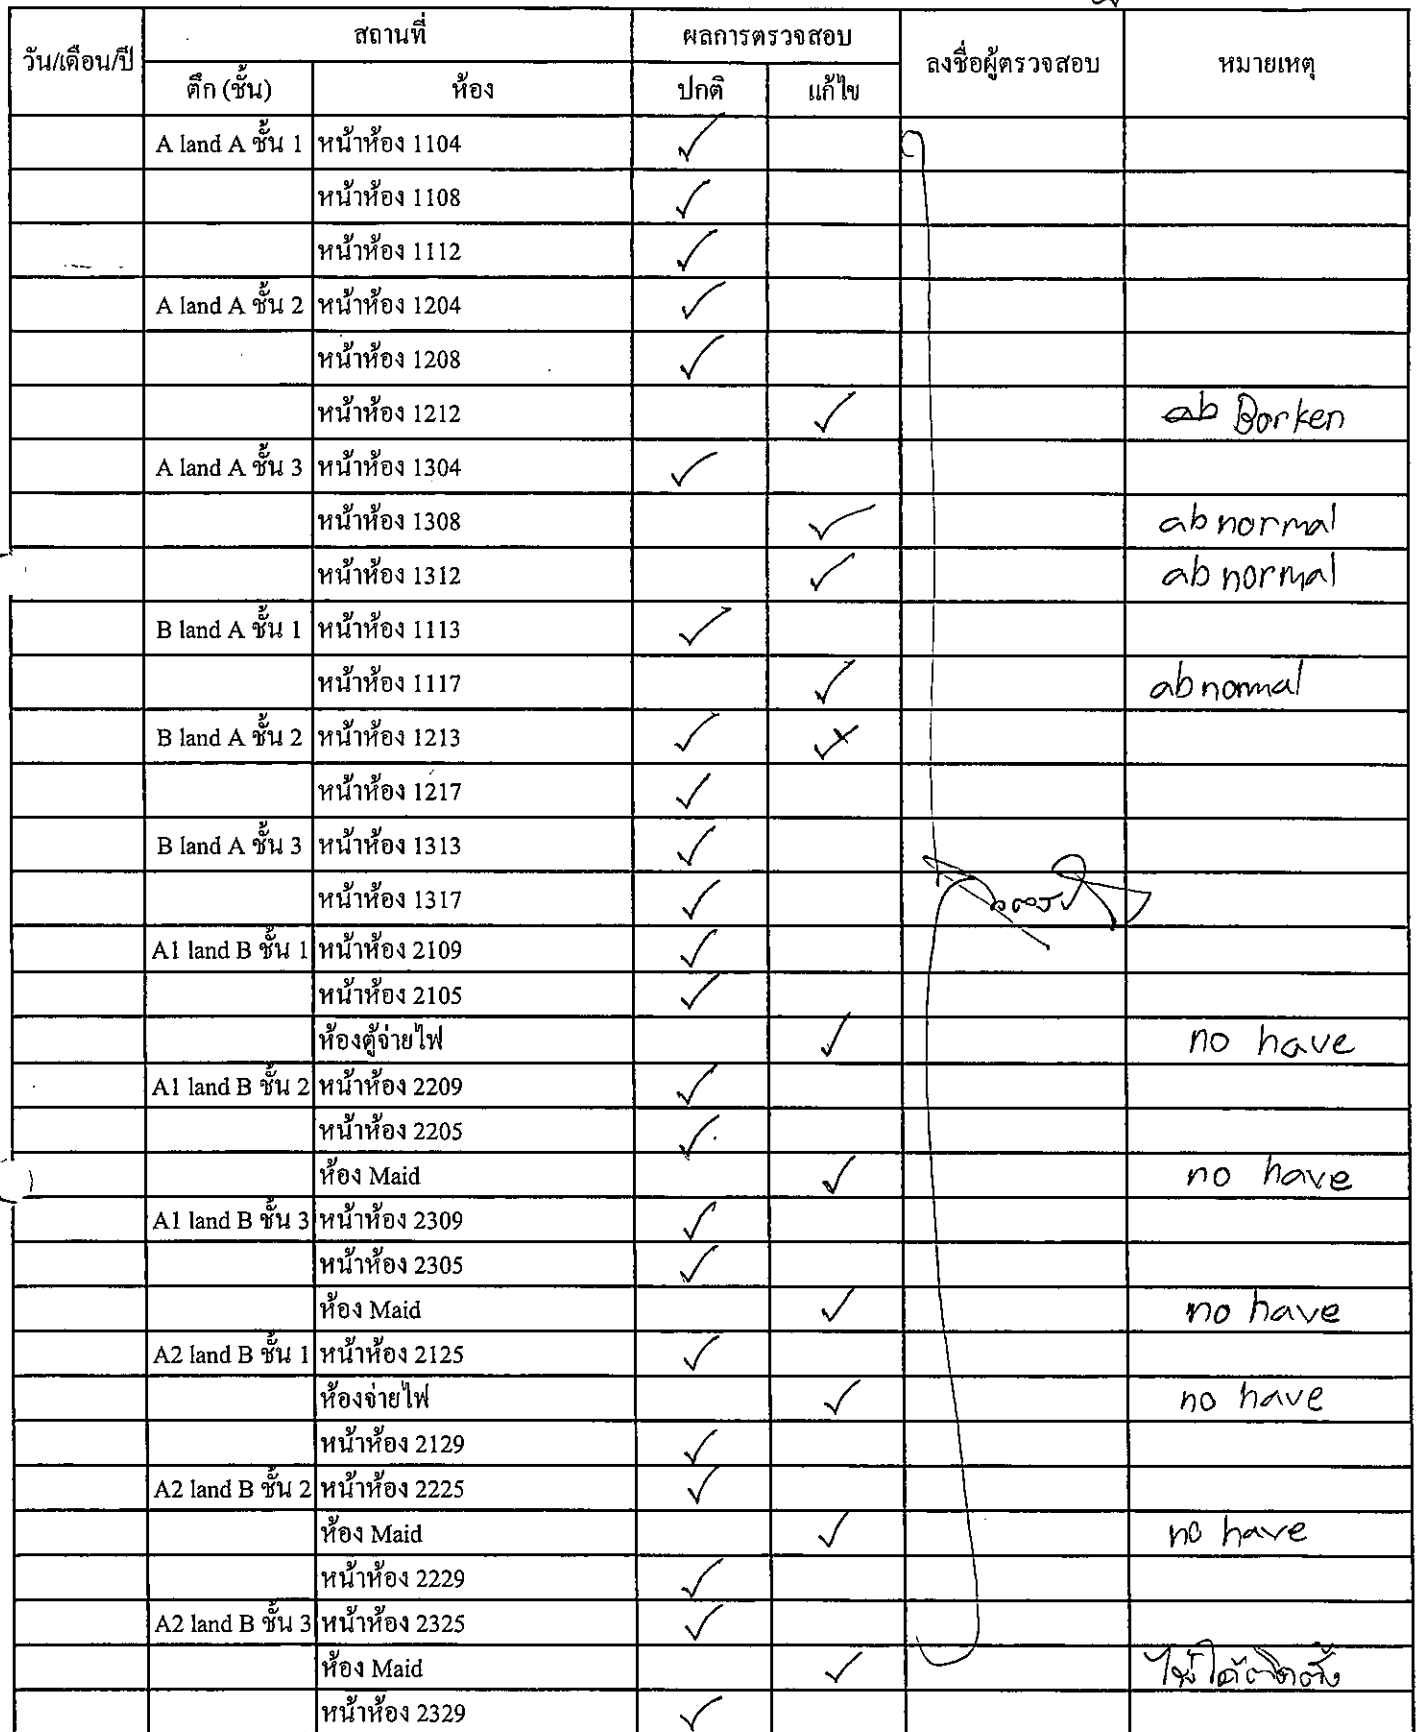 สถานที่ ผลการตรวจสอบ
วัน/เดือน/ปี ลงชื่อผู้ตรวจสอบ หมายเหตุ
ตึก (ชั้น) ห้อง ปกติ แก้ไข
A land A ชั้น 1 หน้าห้อง 1104 ✓
หน้าห้อง 1108 ✓
หน้าห้อง 1112 ✓
A land A ชั้น 2 หน้าห้อง 1204 ✓
หน้าห้อง 1208 ✓
หน้าห้อง 1212 ✓ ab Borken
A land A ชั้น 3 หน้าห้อง 1304 ✓
หน้าห้อง 1308 ✓ abnormal
หน้าห้อง 1312 ✓ abnormal
B land A ชั้น 1 หน้าห้อง 1113 ✓
หน้าห้อง 1117 ✓ abnormal
B land A ชั้น 2 หน้าห้อง 1213 ✓ ✓
หน้าห้อง 1217 ✓
B land A ชั้น 3 หน้าห้อง 1313 ✓
หน้าห้อง 1317 ✓
A1 land B ชั้น 1 หน้าห้อง 2109 ✓
หน้าห้อง 2105 ✓
ห้องตู้จ่ายไฟ ✓ no have
A1 land B ชั้น 2 หน้าห้อง 2209 ✓
หน้าห้อง 2205 ✓
ห้อง Maid ✓ no have
A1 land B ชั้น 3 หน้าห้อง 2309 ✓
หน้าห้อง 2305 ✓
ห้อง Maid ✓ no have
A2 land B ชั้น 1 หน้าห้อง 2125 ✓
ห้องจ่ายไฟ ✓ no have
หน้าห้อง 2129 ✓
A2 land B ชั้น 2 หน้าห้อง 2225 ✓
ห้อง Maid ✓ no have
หน้าห้อง 2229 ✓
A2 land B ชั้น 3 หน้าห้อง 2325 ✓
ห้อง Maid ✓ ไม่ได้ติดตั้ง
หน้าห้อง 2329 ✓